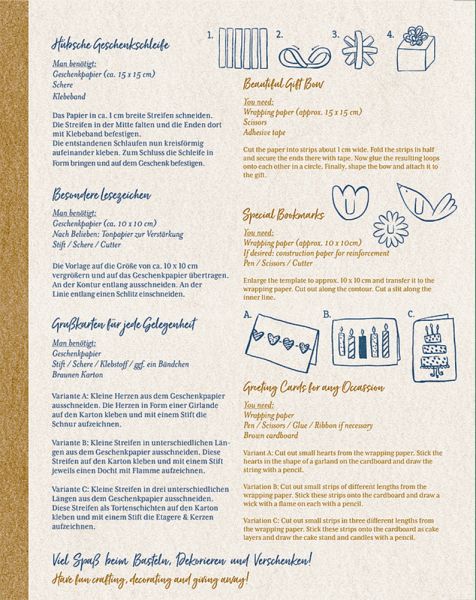 Hübsche Geschenkschleife
Man benötigt:
Geschenkpapier (ca. 15 x 15 cm)
Schere
Klebeband
Das Papier in ca. 1 cm breite Streifen schneiden.
Die Streifen in der Mitte falten und die Enden dort
mit Klebeband befestigen.
Die entstandenen Schlaufen nun kreisförmig
aufeinander kleben. Zum Schluss die Schleife in
Form bringen und auf dem Geschenk befestigen.
Besondere Lesezeichen
Man benötigt:
Geschenkpapier (ca. 10 x 10 cm)
Nach Belieben: Tonpapier zur Verstärkung
Stift / Schere / Cutter
Die Vorlage auf die Größe von ca. 10 x 10 cm
vergrößern und auf das Geschenkpapier übertragen.
An der Kontur entlang ausschneiden. An der
Linie entlang einen Schlitz einschneiden.
Grußkarten für jede Gelegenheit
Man benötigt:
Geschenkpapier
Stift / Schere / Klebstoff / ggf. ein Bändchen
Braunen Karton
Variante A: Kleine Herzen aus dem Geschenkpapier
ausschneiden. Die Herzen in Form einer Girlande
auf den Karton kleben und mit einem Stift die
Schnur aufzeichnen.
Variante B: Kleine Streifen in unterschiedlichen Län-
gen aus dem Geschenkpapier ausschneiden. Diese
Streifen auf den Karton kleben und mit einem Stift
jeweils einen Docht mit Flamme aufzeichnen.
Variante C: Kleine Streifen in drei unterschiedlichen
Längen aus dem Geschenkpapier ausschneiden.
Diese Streifen als Tortenschichten auf den Karton
kleben und mit einem Stift die Etagere & Kerzen
aufzeichnen.
1.
2.
3.
4.
Beautiful Gift Bow
You need:
Wrapping paper (approx. 15 x 15 cm)
Scissors
Adhesive tape
Cut the paper into strips about 1 cm wide. Fold the strips in half
and secure the ends there with tape. Now glue the resulting loops
onto each other in a circle. Finally, shape the bow and attach it to
the gift.
Special Bookmarks
You need:
Wrapping paper (approx. 10 x 10cm)
If desired: construction paper for reinforcement
Pen / Scissors / Cutter
Enlarge the template to approx. 10 x 10 cm and transfer it to the
wrapping paper. Cut out along the contour. Cut a slit along the
inner line.
A.
B.
C.
Greeting Cards for any Occassion
You need:
Wrapping paper
Pen / Scissors / Glue / Ribbon if necessary
Brown cardboard
Variant A: Cut out small hearts from the wrapping paper. Stick the
hearts in the shape of a garland on the cardboard and draw the
string with a pencil.
Variation B: Cut out small strips of different lengths from the
wrapping paper. Stick these strips onto the cardboard and draw a
wick with a flame on each with a pencil.
Variation C: Cut out small strips in three different lengths from
the wrapping paper. Stick these strips onto the cardboard as cake
layers and draw the cake stand and candles with a pencil.
Viel Spaß beim Basteln, Dekorieren und Verschenken!
Have fun crafting, decorating and giving away!